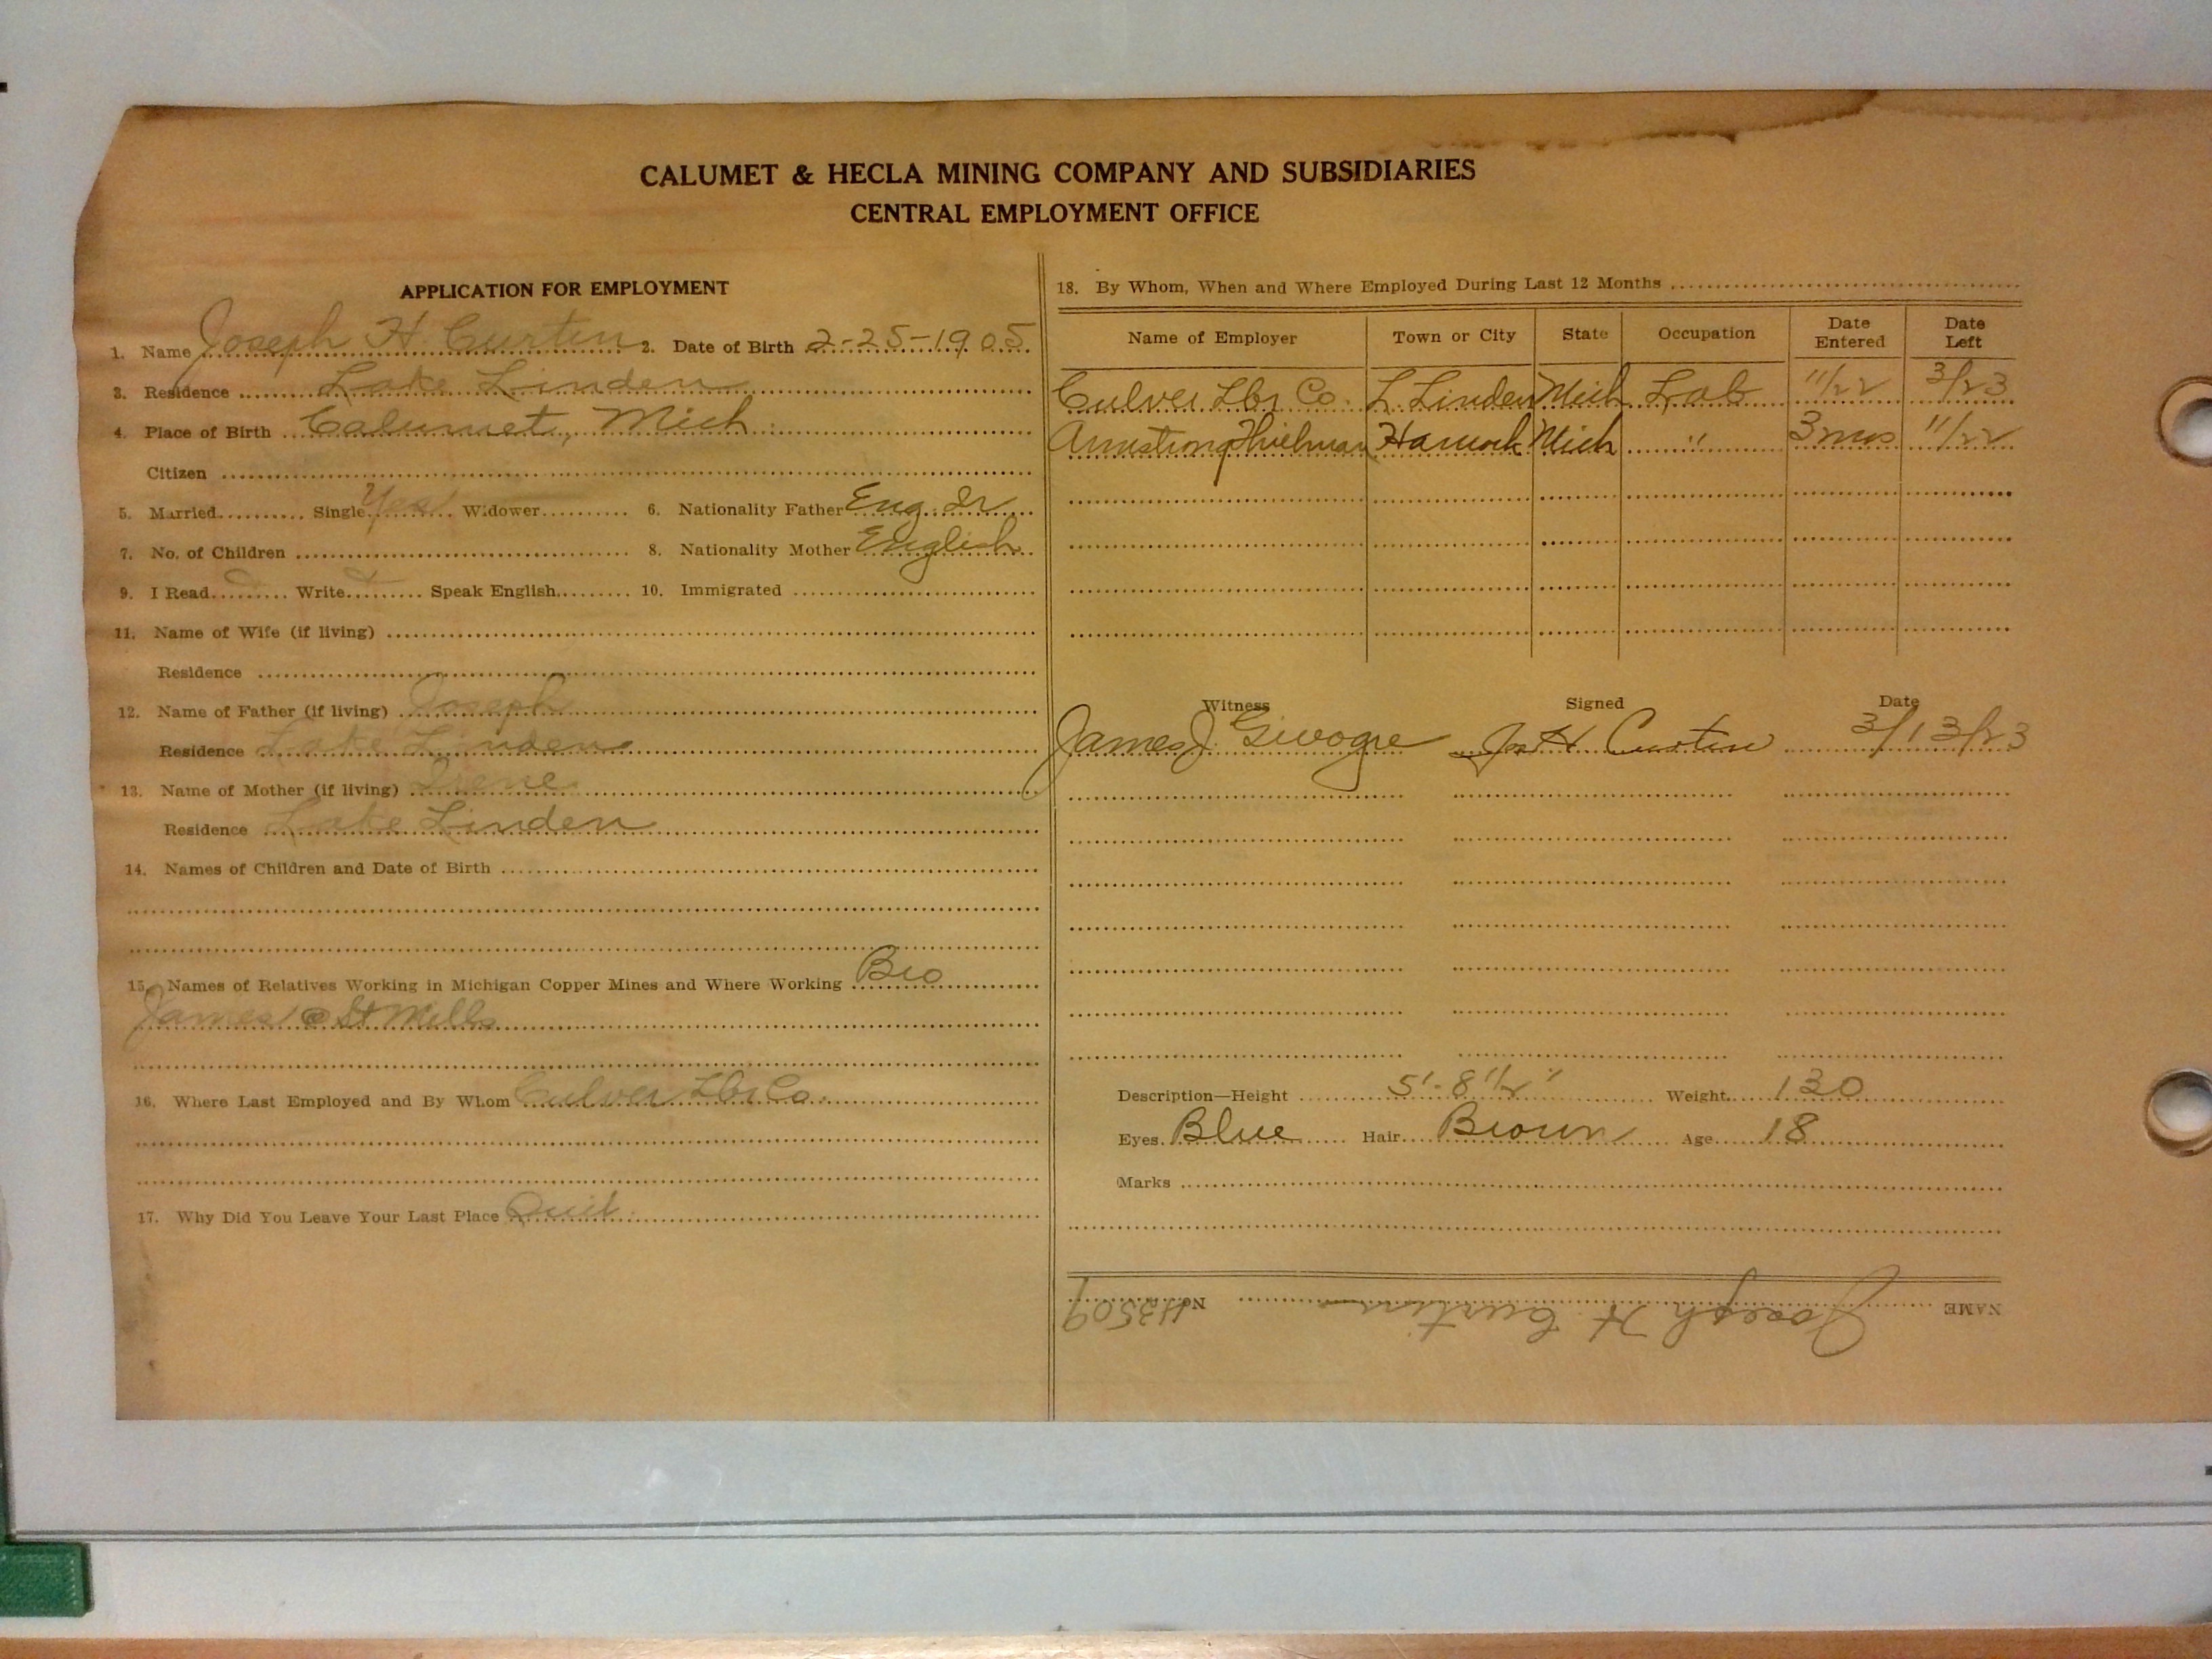 CALUMET & HECLA MINING COMPANY AND SUBSIDIARIES
CENTRAL EMPLOYMENT OFFICE
APPLICATION FOR EMPLOYMENT
1. Name Joseph H. Curtin 2. Date of Birth 2-25-1905
3. Residence Lake Linden
4. Place of Birth Calumet, Mich
Citizen
5. Married Single Yes Widower 6. Nationality Father Eng. Ir
7. No. of Children 8. Nationality Mother English
9. I Read Write Speak English 10. Immigrated
11. Name of Wife (if living)
Residence
12. Name of Father (if living) Joseph
Residence Lake Linden
13. Name of Mother (if living) Irene
Residence Lake Linden
14. Names of Children and Date of Birth
15. Names of Relatives Working in Michigan Copper Mines and Where Working Bro
James @ St Mills
16. Where Last Employed and By Whom Culver Lbr Co.
17. Why Did You Leave Your Last Place Quit.
18. By Whom, When and Where Employed During Last 12 Months
Name of Employer Town or City State Occupation Date Entered Date Left
Culver Lbr Co. L Linden Mich Lab 11/22 3/23
Armstrong Thielman Hancock Mich " 3 mos 11/22
Witness Signed Date
James J. Jos H Curtin 3/13/23
Description—Height 5'-8 1/2" Weight 130
Eyes Blue Hair Brown Age 18
Marks
NAME Joseph H. Curtin No. H3509